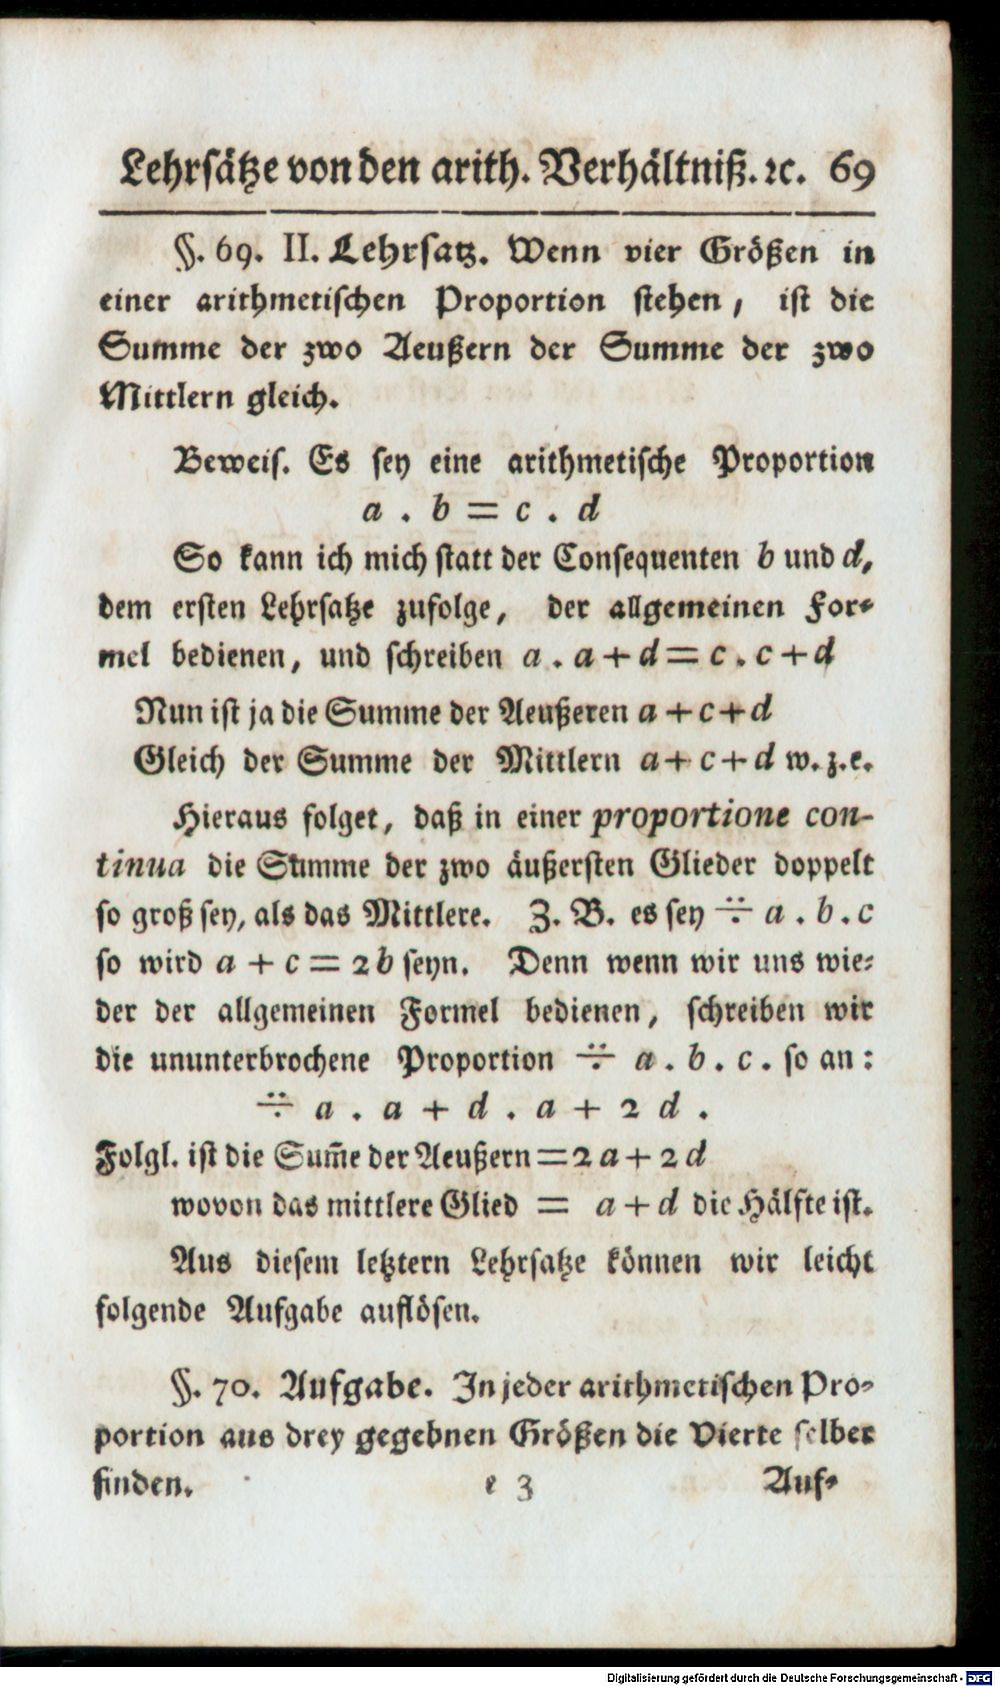 Lehrsätze von den arith. Verhältniß. ꝛc. 69
§. 69. II. Lehrsatz. Wenn vier Größen in
einer arithmetischen Proportion stehen, ist die
Summe der zwo Aeußern der Summe der zwo
Mittlern gleich.
Beweis. Es sey eine arithmetische Proportion
a . b = c . d
So kann ich mich statt der Consequenten b und d,
dem ersten Lehrsatze zufolge, der allgemeinen For⸗
mel bedienen, und schreiben a . a + d = c . c + d
Nun ist ja die Summe der Aeußeren a + c + d
Gleich der Summe der Mittlern a + c + d w. z. e.
Hieraus folget, daß in einer proportione con-
tinua die Summe der zwo äußersten Glieder doppelt
so groß sey, als das Mittlere. Z. B. es sey ∺ a . b . c
so wird a + c = 2 b seyn. Denn wenn wir uns wie⸗
der der allgemeinen Formel bedienen, schreiben wir
die ununterbrochene Proportion ∺ a . b . c . so an :
∺ a . a + d . a + 2 d .
Folgl. ist die Sum̅e der Aeußern = 2 a + 2 d
wovon das mittlere Glied = a + d die Hälfte ist.
Aus diesem letztern Lehrsatze können wir leicht
folgende Aufgabe auflösen.
§. 70. Aufgabe. In jeder arithmetischen Pro⸗
portion aus drey gegebnen Größen die Vierte selber
finden.
e 3 Auf⸗
Digitalisierung gefördert durch die Deutsche Forschungsgemeinschaft - DFG